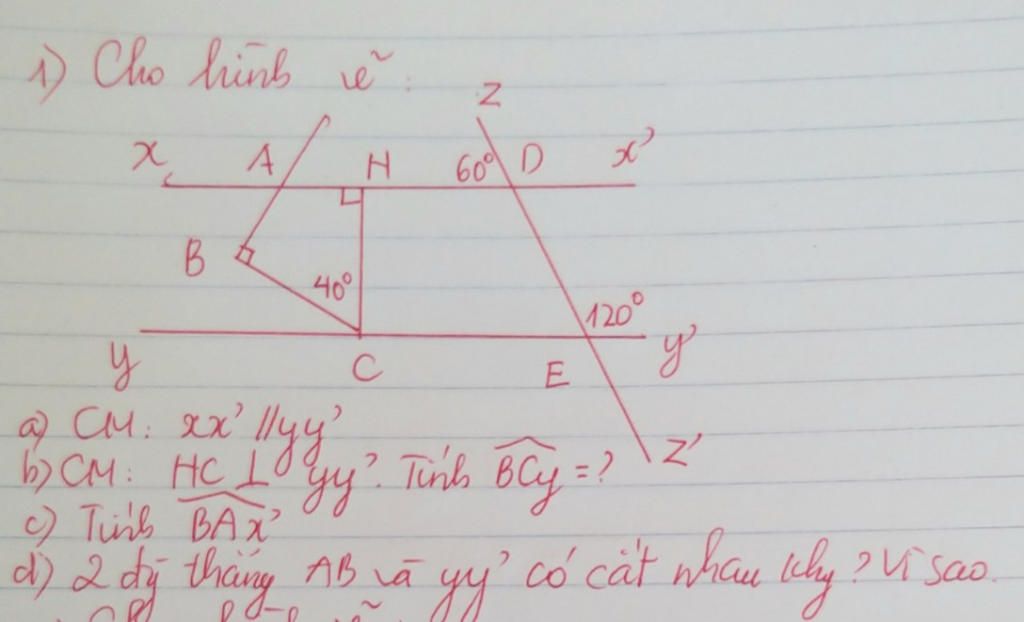 1) Cho hình vẽ:
z
x A H 60° D x'
B
40°
120°
y C E y'
z'
a) CM: xx' // yy'
b) CM: HC ⊥ yy'. Tính BCy = ?
c) Tính BAx'
d) 2 đg thẳng AB và yy' có cắt nhau khg? Vì sao.